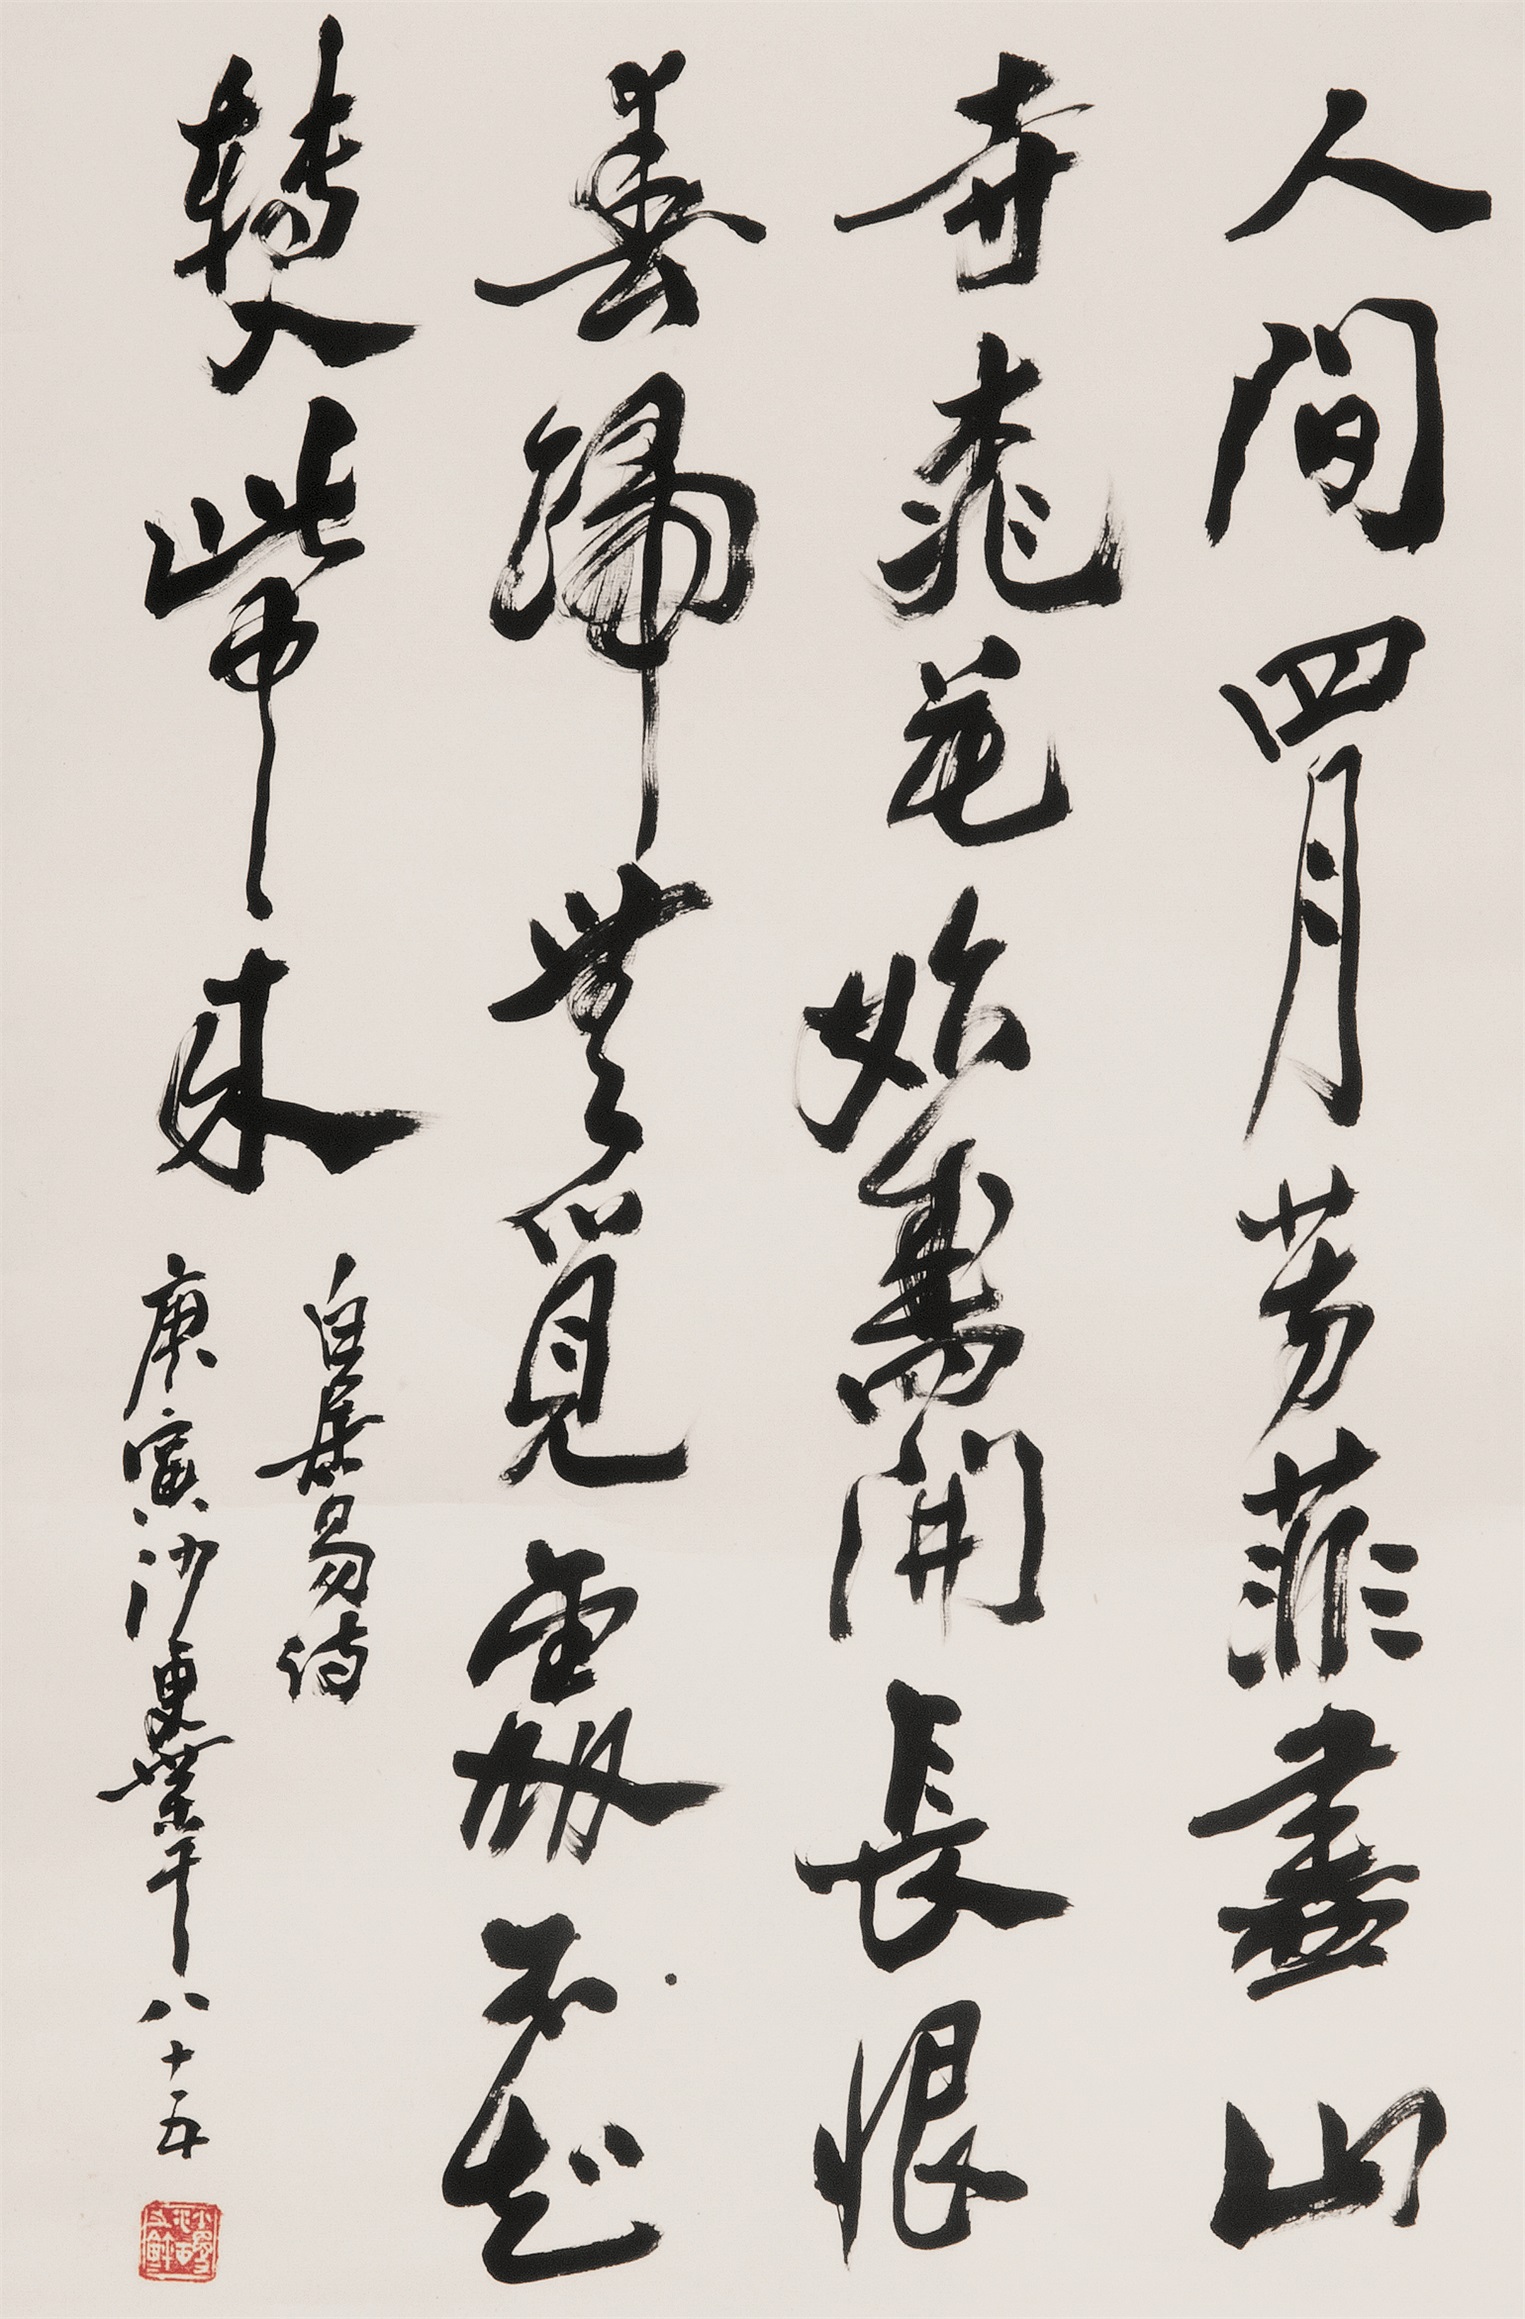 人間四月芳菲盡山
寺桃花始盛開長恨
春歸無覓處不知
轉入此中來
白居易诗
庚寅沙更世年八十五